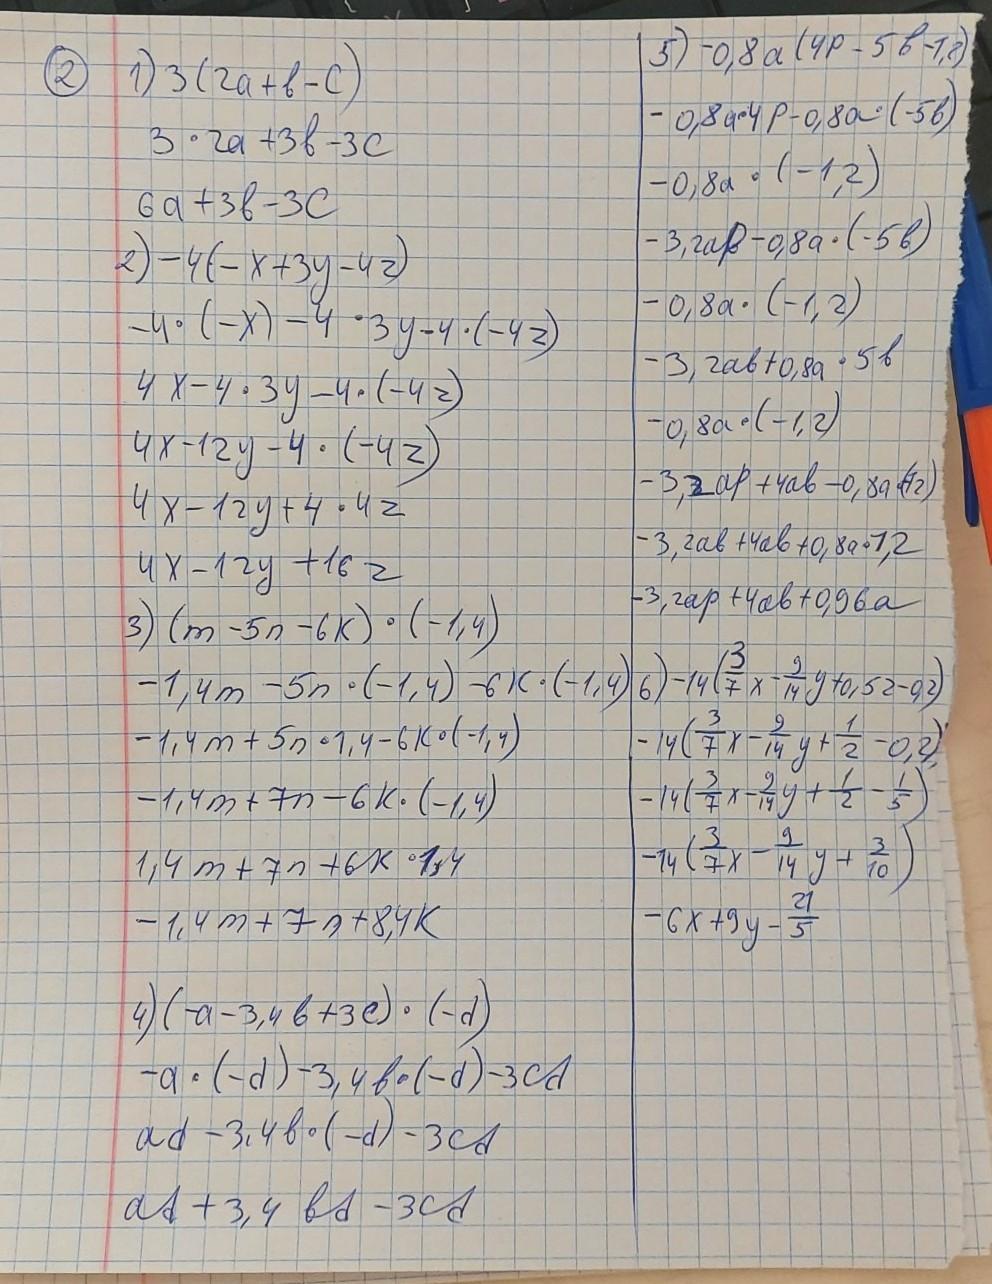 ② 1) 3(2a+b-c)
3·2a+3b-3c
6a+3b-3c
2) -4(-x+3y-4z)
-4·(-x)-4·3y-4·(-4z)
4x-4·3y-4·(-4z)
4x-12y-4·(-4z)
4x-12y+4·4z
4x-12y+16z
3) (m-5n-6k)·(-1,4)
-1,4m-5n·(-1,4)-6k·(-1,4)
-1,4m+5n·1,4-6k·(-1,4)
-1,4m+7n-6k·(-1,4)
1,4m+7n+6k·1,4
-1,4m+7n+8,4k
4) (-a-3,4b+3c)·(-d)
-a·(-d)-3,4b·(-d)-3cd
ad-3,4b·(-d)-3cd
ad+3,4bd-3cd
5) -0,8a(4p-5b-1,2)
-0,8a·4p-0,8a·(-5b)
-0,8a·(-1,2)
-3,2ap-0,8a·(-5b)
-0,8a·(-1,2)
-3,2ab+0,8a·5b
-0,8a·(-1,2)
-3,2ap+4ab-0,8a(-1,2)
-3,2ab+4ab+0,8a·1,2
-3,2ap+4ab+0,96a
6) -14(3/7x-9/14y+0,5z-0,2)
-14(3/7x-9/14y+1/2-0,2)
-14(3/7x-9/14y+1/2-1/5)
-14(3/7x-9/14y+3/10)
-6x+9y-21/5